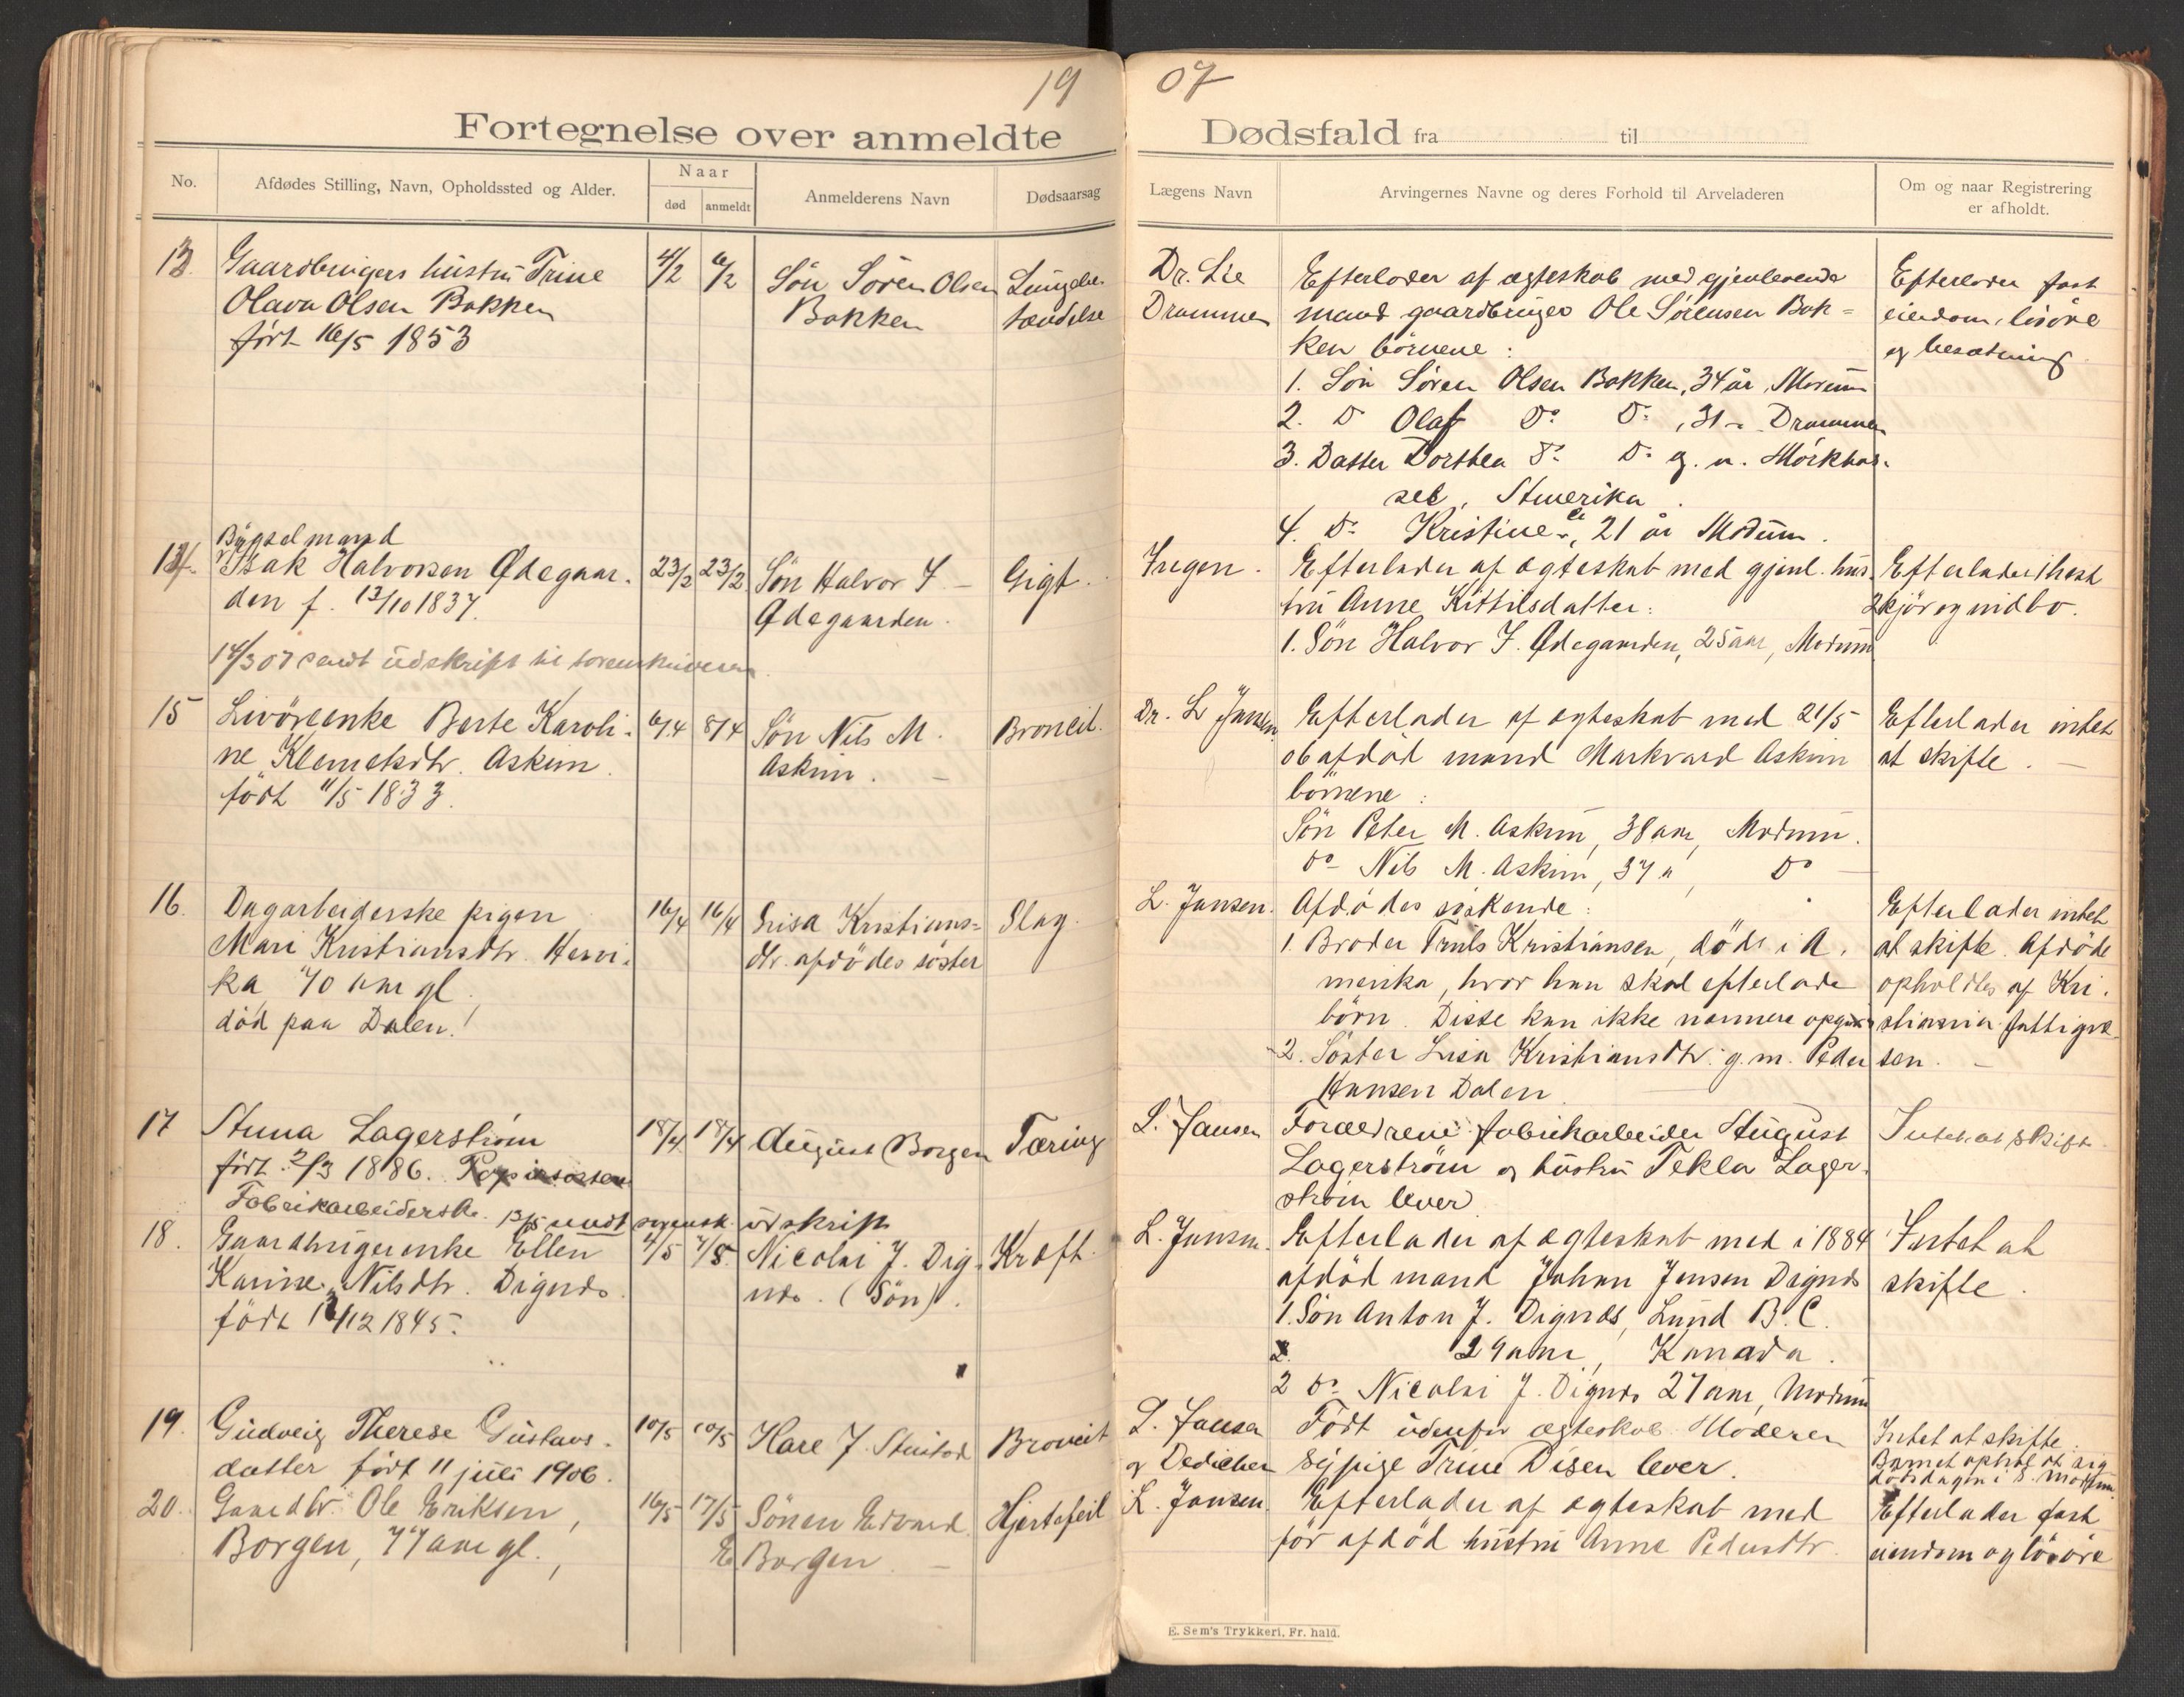 19
Fortegnelse over anmeldte
No.
Afdødes Stilling, Navn, Opholdssted og Alder.
Naar
død
anmeldt
Anmelderens Navn
Dødsaarsag
13.
Gaardbrugers hustru Trine
Olava Olsen Bakken
født 16/5 1853
4/2
6/2
Søn Sören Olsen
Bakken
Lungebe-
tændelse
14.
Bygselmand
Isak Halvorsen Ødegaar-
den f. 13/10 1837.
23/2
23/2
Søn Halvor I
Ødegaarden.
Gigt.
14/3 07 sendt udskrift til sorenskriveren
15
Livöreenke Berte Karoli-
ne Klemetsdtr. Askim.
födt 11/5 1833.
6/4
8/4
Søn Nils M.
Askim. —
Broncit.
16.
Dagarbeiderske pigen
Mari Kristiansdtr. Hervi-
ka, 70 aar gl.
död paa Dalen.
16/4
16/4
Lisa Kristians-
dtr. afdødes søster
Slag.
17
Anna Lagerstrøm
født 2/3 1886.
Fabrikarbeiderske. 13/5 sendt sorensk. udskrift
18/4
18/4
August Borgen
Tæring
18.
Gaardbrugerenke Ellen
Karine Nilsdtr. Digrds.
födt 12 1845.
4/5
7/5.
Nicolai J. Dig-
rds. (Søn).
Kræft.
19.
Gudveig Therese Gustavs-
datter født 11 juli 1906.
10/5
10/5
J.
Broncit
20.
Gaardbr. Ole Eriksen
Borgen, 77 aar gl.
16/5
17/5
Sönen Edvard
E Borgen. —
Hjertefeil
07
Dødsfald fra til
Lægens Navn
Arvingernes Navne og deres Forhold til Arveladeren
Om og naar Registrering
er afholdt.
Dr. Lie
Drammen
Efterlader af ægteskab med gjenlevende
mand gaardbruger Ole Sørensen Bak-
ken börnene:
1. Søn Søren Olsen Bakken, 34 år, Modum
2. Do Olaf Do Do, 31 - Drammen
3. Datter Dorthea Do Do g. m. Mörkhas-
sel, Amerika.
4. Do Kristine, 21 år Modum.
Efterlader fast
eiendom, lösöre
og besætning.
Ingen.
Efterlader af ægteskab med gjenl. hus-
tru Anne Kittilsdatter:
1. Søn Halvor I. Ødegaarden, 25 aar, Modum
Efterlader 1 hest
2 kjör og indbo.
Dr. L Jansen.
Efterlader af ægteskab med 21/5
06 afdöd mand Markvard Askim
börnene:
Søn Peter M. Askim, 38 aar, Modum.
do Nils M. Askim, 37 a, Do —
Efterlader intet
at skifte. —
L. Jansen.
Afdödes söskende:
1. Broder Truls Kristiansen, död i A-
merika, hvor han skal efterlade
börn. Disse kan ikke nærmere opgives
2. Söster Lisa Kristiansdtr. g. m. Peder
Hansen Dalen.
Efterlader intet
at skifte. Afdöde
opholdtes af Kri-
stiania fattigvæ-
sen. —
L. Jansen
Forældrene fabrikarbeider August
Lagerström og hustru Tekla Lager-
ström lever.
Intet at skifte
L. Jansen.
Efterlader af ægteskab med i 1884
afdöd mand Johan Jensen Digrds
1. Søn Anton J. Digrds, Lund B. C.
29 aar, Kanada.
2 do Nicolai J. Digrds 27 aar, Modum
Intet at
skifte.
L. Jansen
og Dedichen
Født udenfor ægteskab. Moderen
sypige Trine Disen lever.
Intet at skifte.
Barnet opholdt sig
dödsdagen i S. Modum.
L. Jansen.
Efterlader af ægteskab med
för afdöd hustru Anne Pedersdtr.
Efterlader fast
eiendom og lösöre
E. Sem's Trykkeri, Fr. hald.